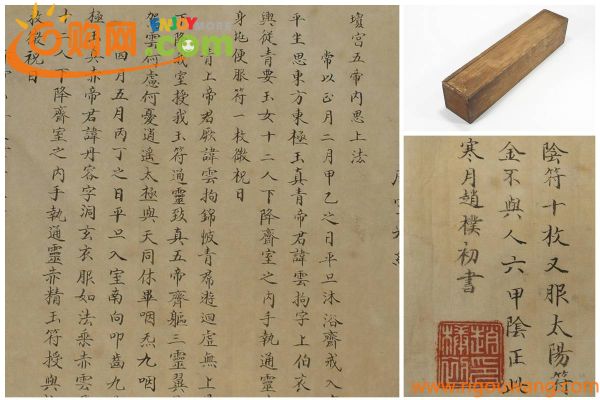 瓊宫五帝内思上法
常以正月二月甲乙之日平旦沐浴齋戒入
平坐思東方東極玉真青帝君諱雲拘字上伯衣
輿從青要玉女十二人下降齋室之内手執通靈
身抱便服符一枚微祝曰
青上帝君厥諱雲拘錦帔青帬遊迴虚無上
下降我室授我玉符通靈致真五帝齊軀三靈翼
駕雲何慮何憂逍遥太極與天同休畢咽炁九咽
四月五月丙丁之日平旦入室南向叩齒九
極玉真赤帝君諱丹容字洞玄衣服如法乘赤雲
十二人下降齋室之内手執通靈赤精玉符授與
枚微祝曰
陰符十枚又服太陽符
金不與人六甲陰正
寒月趙樸初書
易购网.com
ENJOY MORE
www.rigouwang.com